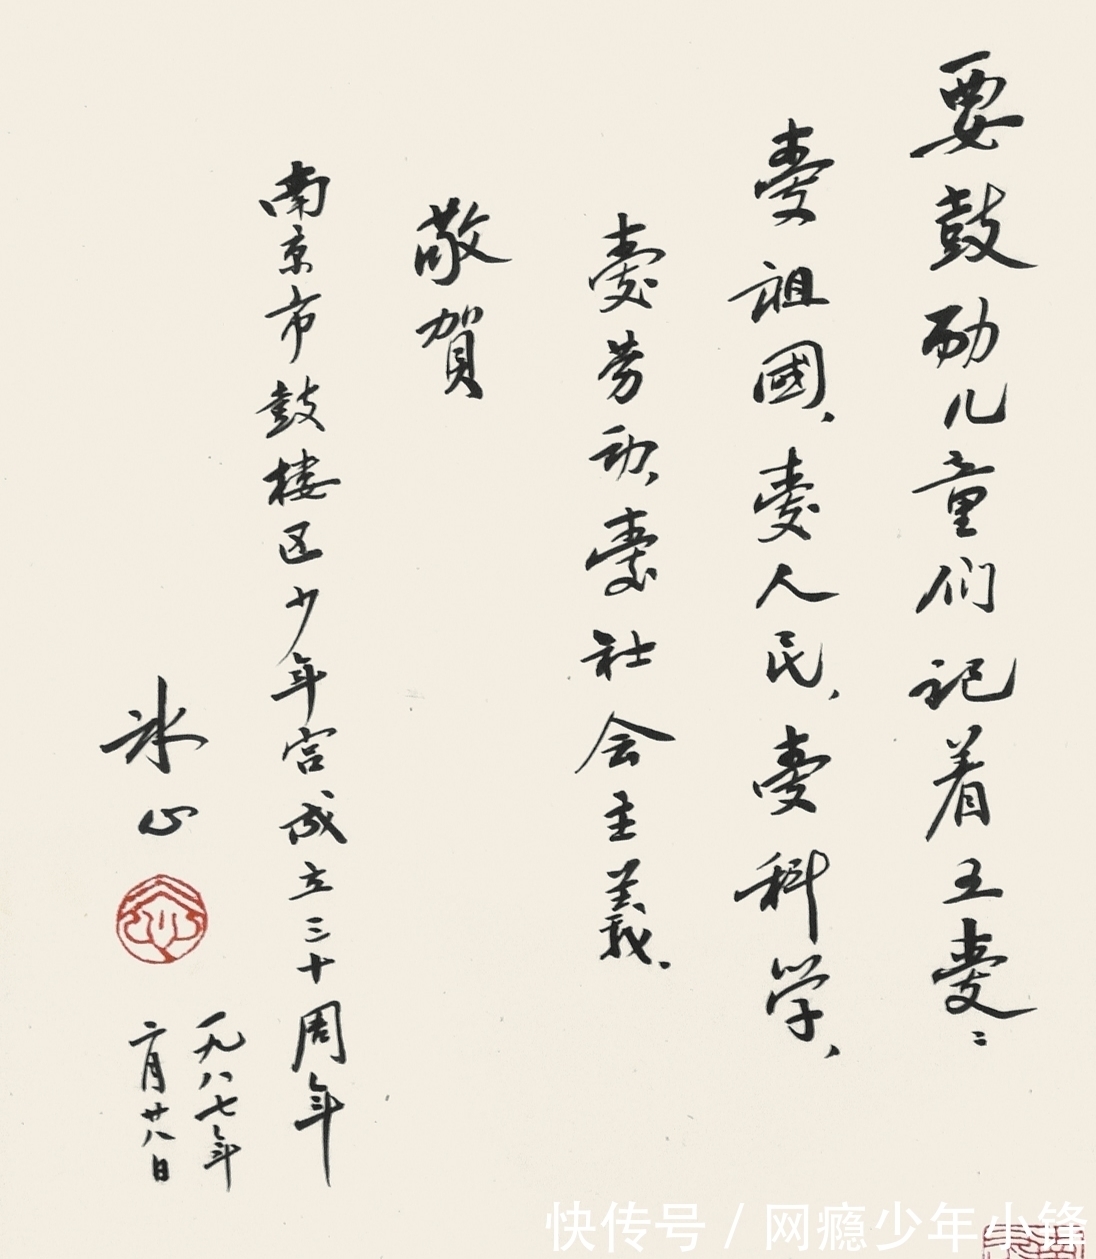 要鼓励儿童们记着五爱：
爱祖國、爱人民、爱科学、
爱劳动、爱社会主義、
敬賀
南京市鼓楼区少年宫成立三十周年
冰心
一九八七年
二月廿八日
快传号 / 网瘾少年小锋